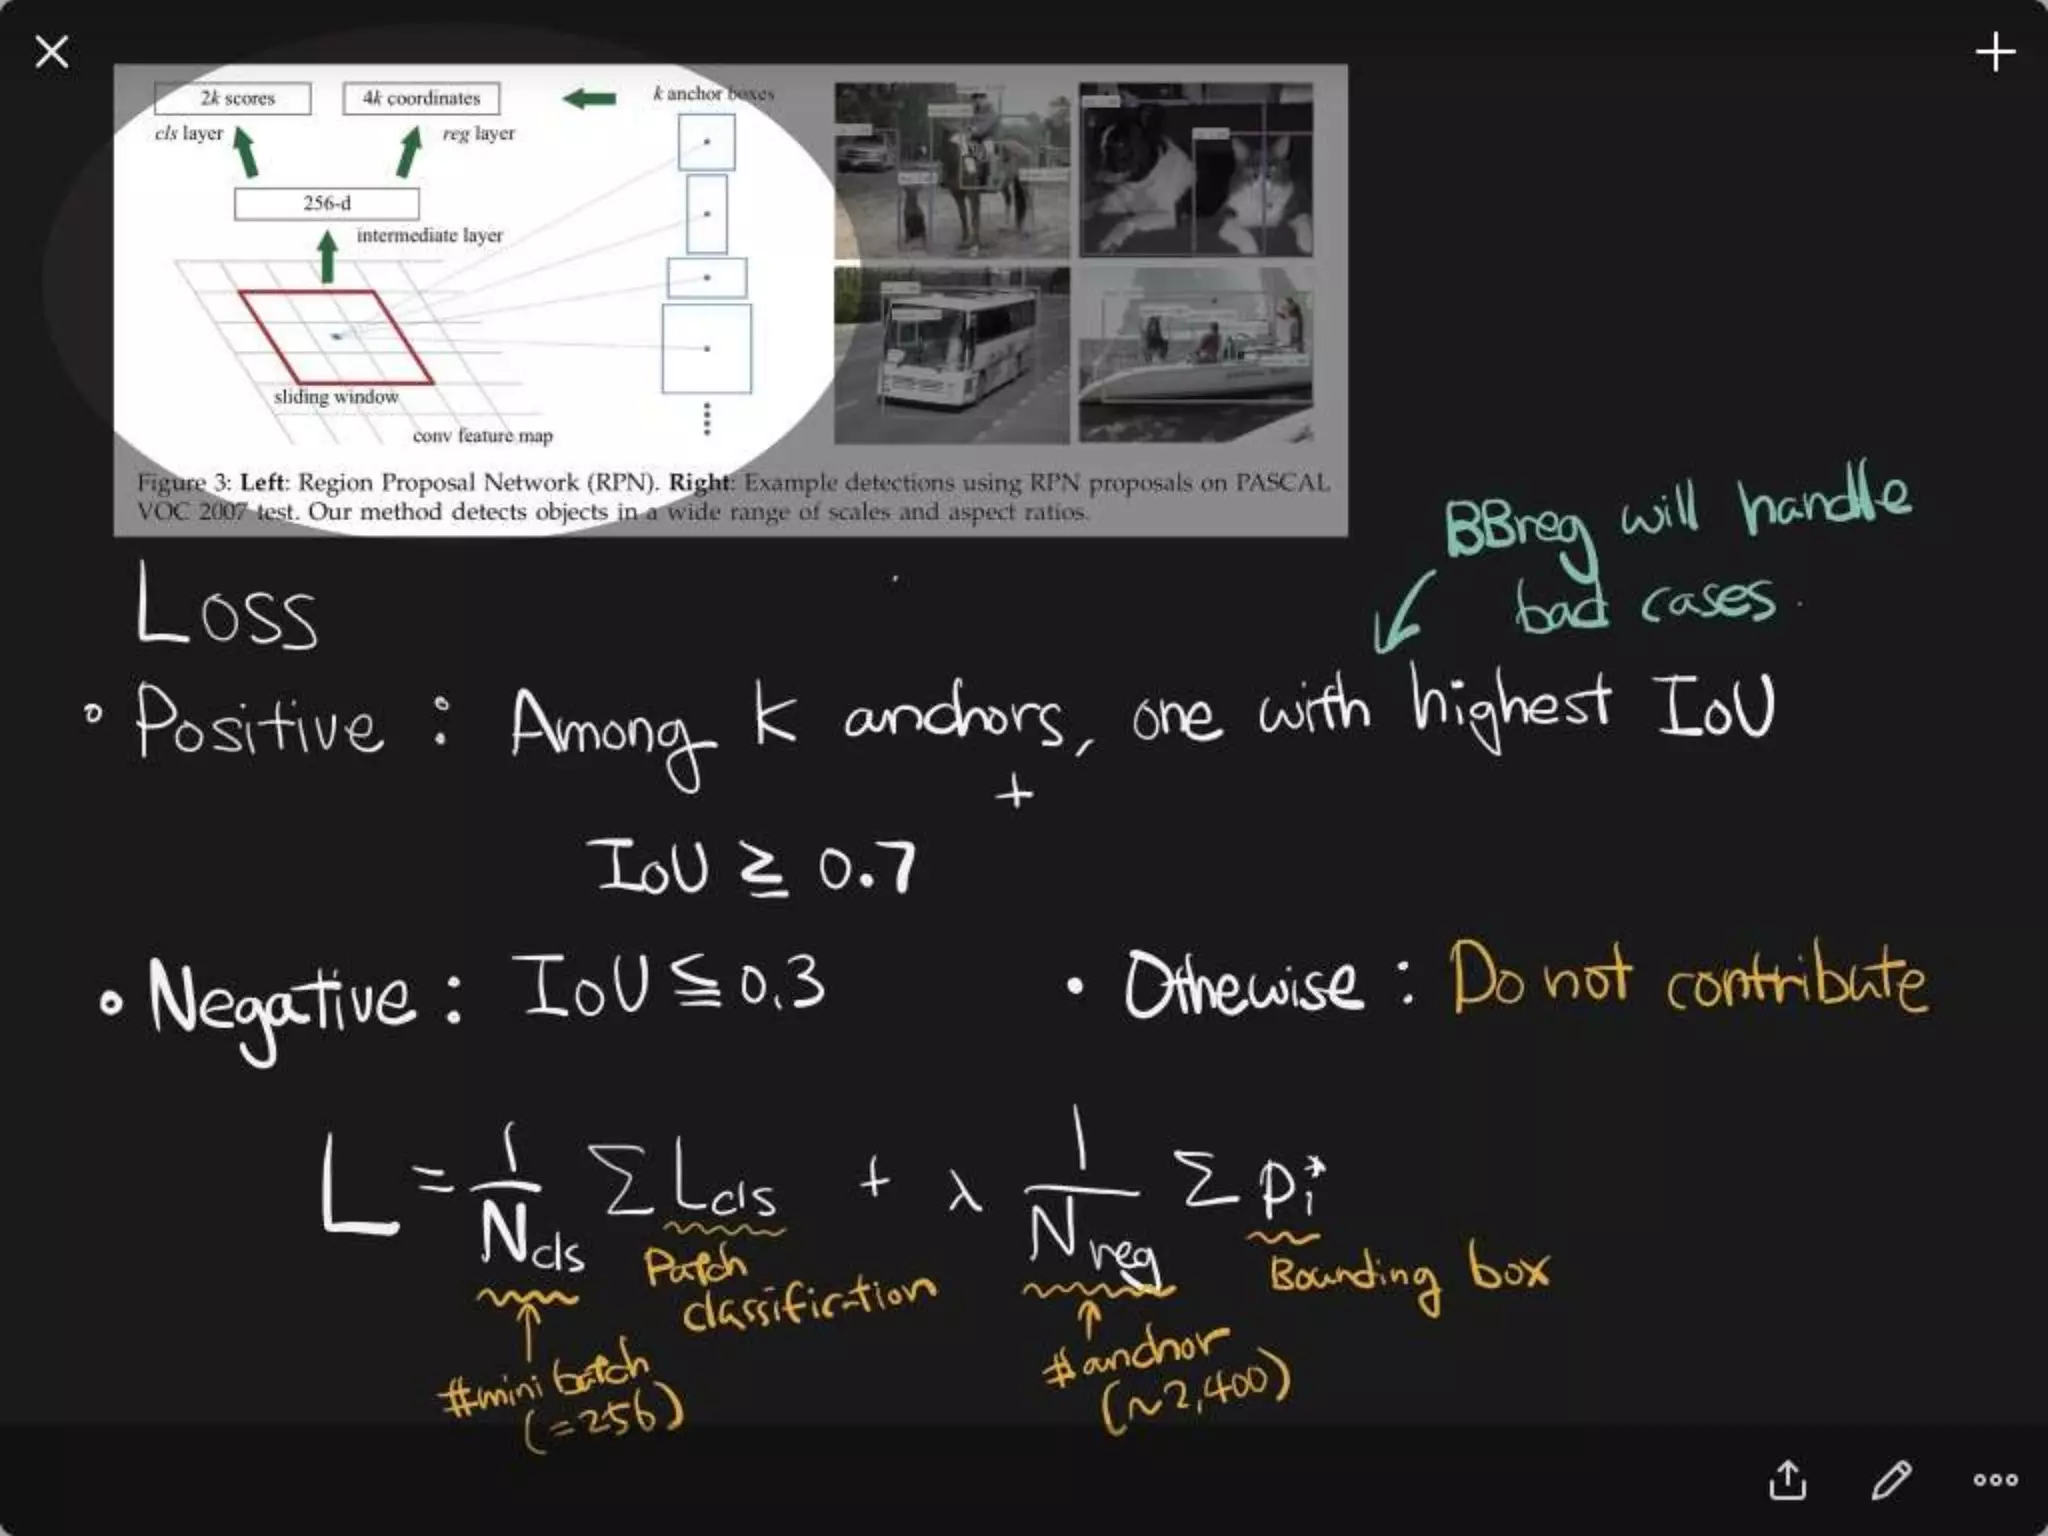 2k scores
4k coordinates
k anchor boxes
cls layer
reg layer
256-d
intermediate layer
sliding window
conv feature map
Figure 3: Left: Region Proposal Network (RPN). Right: Example detections using RPN proposals on PASCAL
VOC 2007 test. Our method detects objects in a wide range of scales and aspect ratios.
BBreg will handle
bad cases.
Loss
• Positive : Among k anchors, one with highest IoU
+
IoU ≧ 0.7
• Negative : IoU ≦ 0.3
• Othewise : Do not contribute
L = 1/Ncls Σ Lcls + λ 1/Nreg Σ pi*
Patch
classification
Bounding box
#mini batch
(=256)
#anchor
(~2,400)